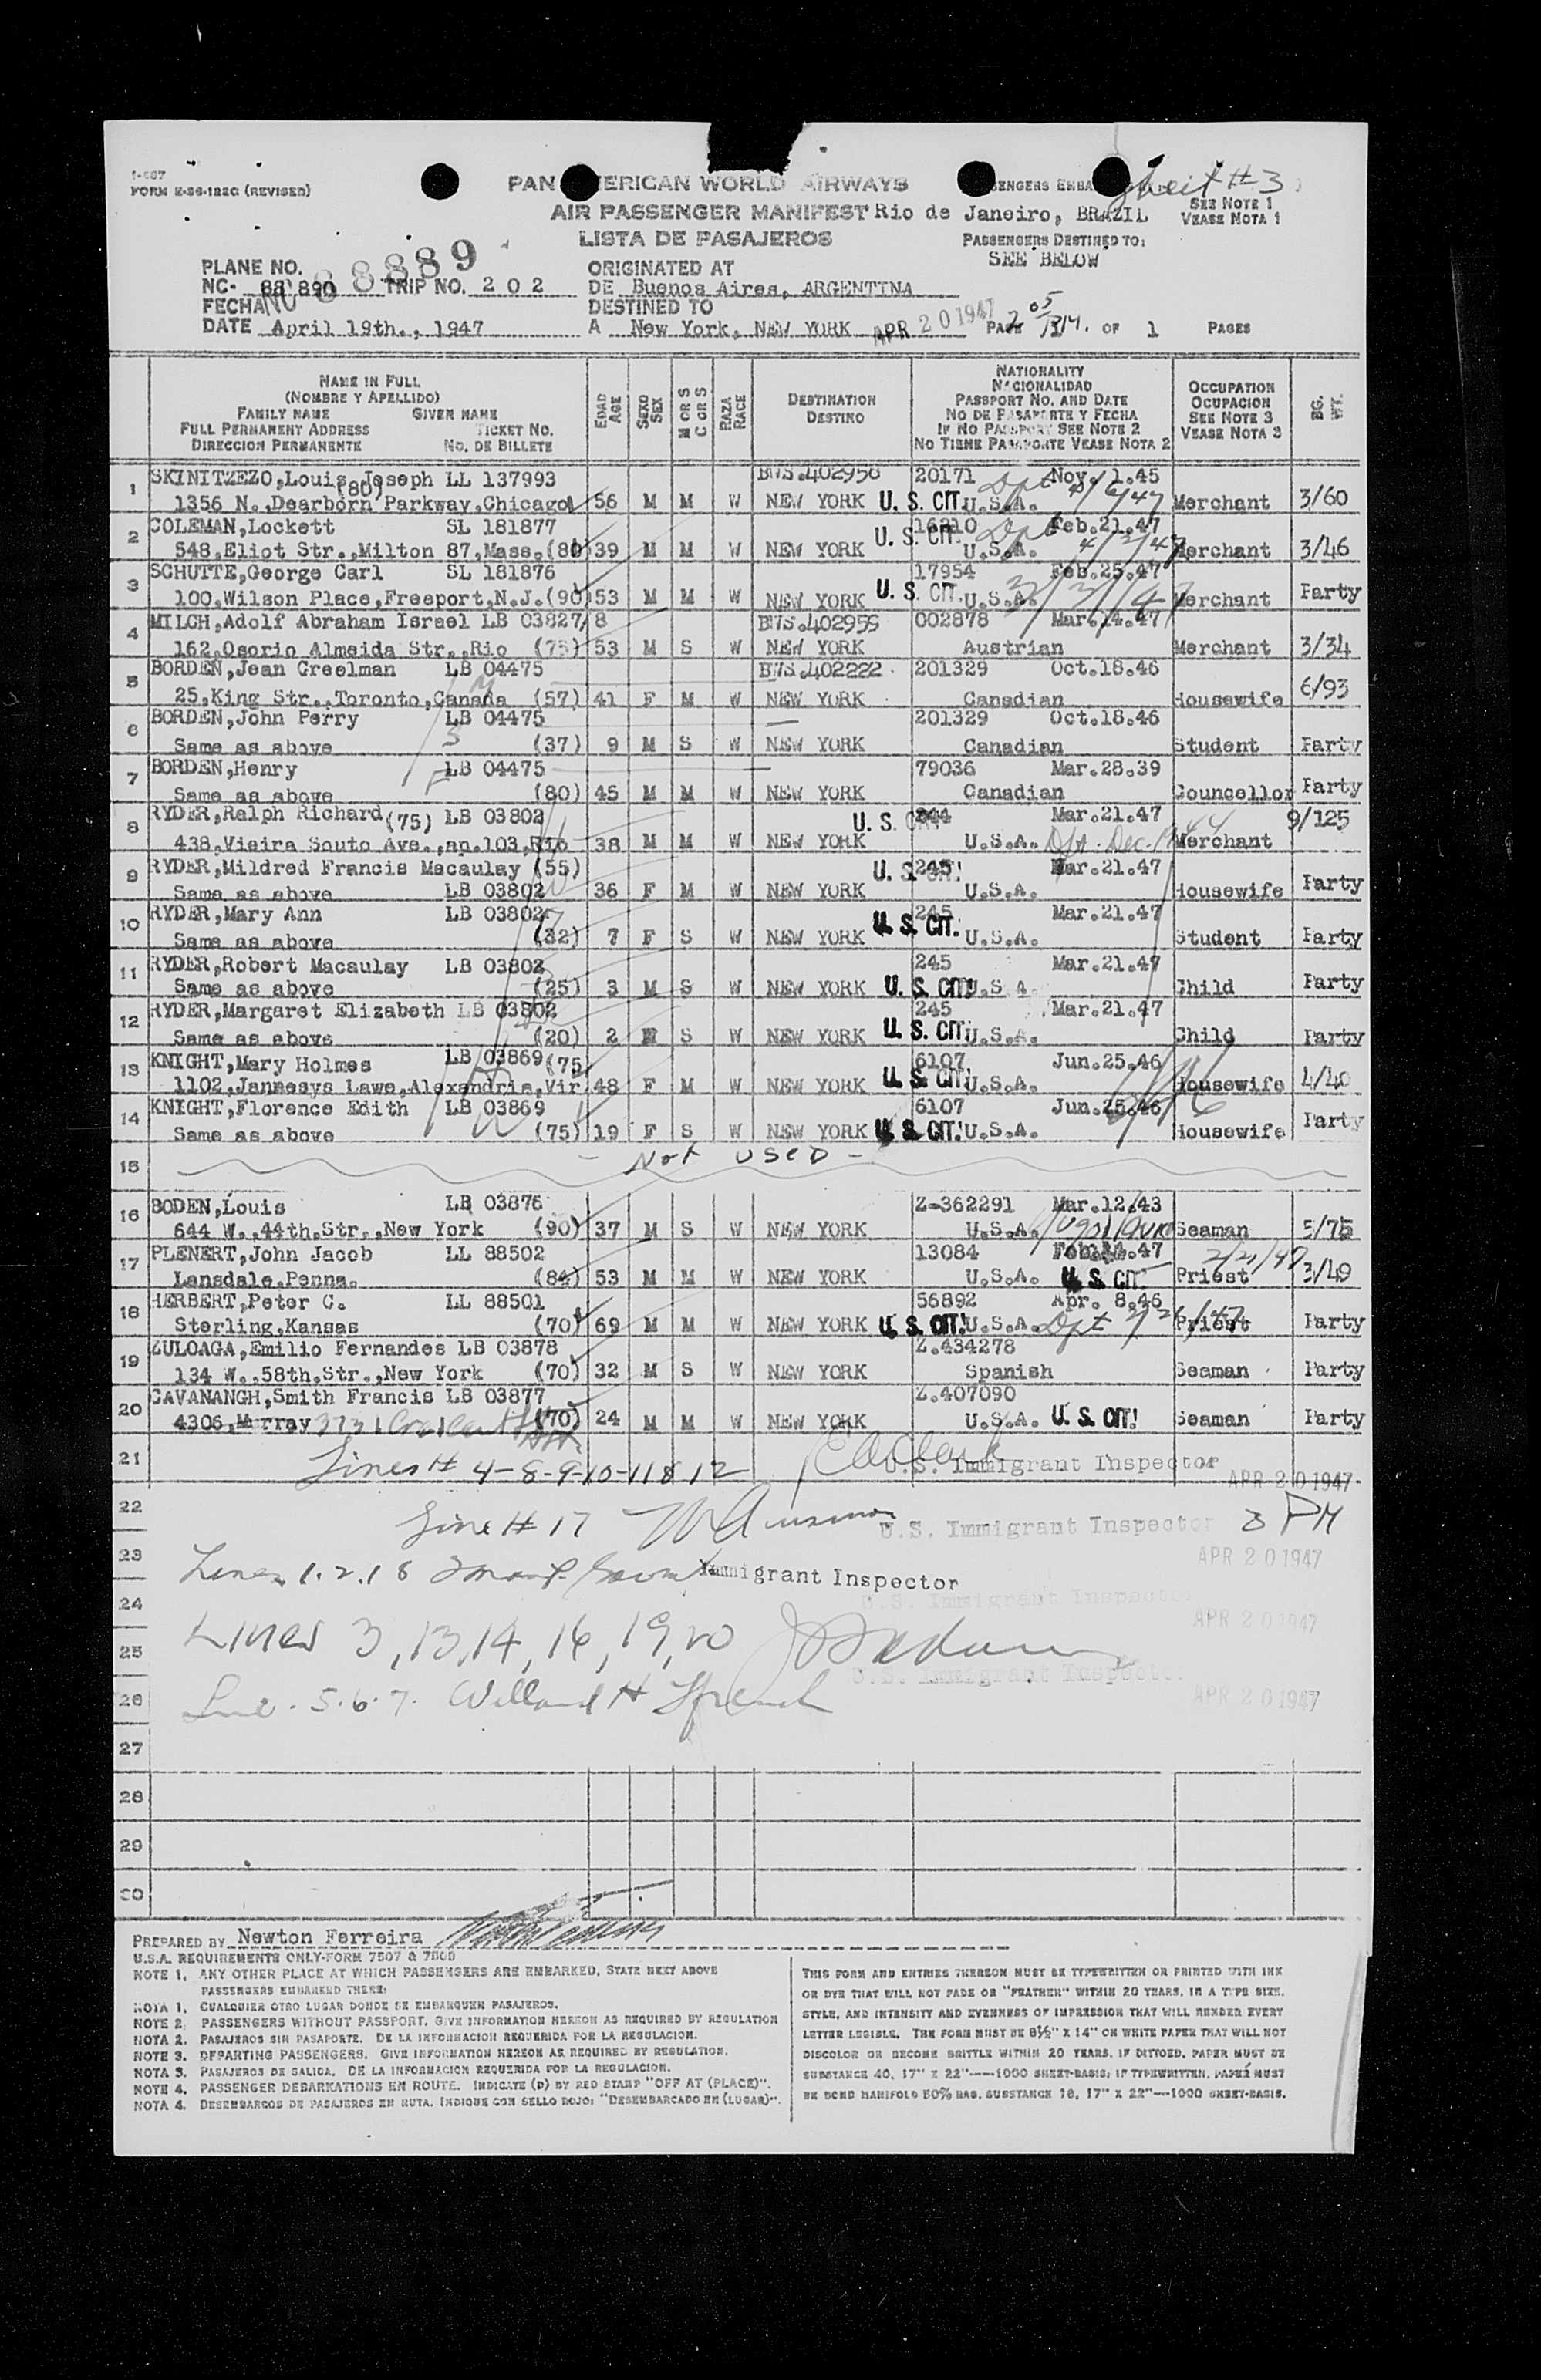 I-487
FORM E-36-122C (REVISED)
PAN AMERICAN WORLD AIRWAYS
Sheet #3
AIR PASSENGER MANIFEST Rio de Janeiro, BRAZIL
SEE NOTE 1
VEASE NOTA 1
LISTA DE PASAJEROS
PASSENGERS DESTINED TO:
SEE BELOW
PLANE NO.
NC- 88 890 TRIP NO. 2 0 2
NC 88889
ORIGINATED AT
DE Buenos Aires, ARGENTINA
FECHA
DATE April 19th., 1947
DESTINED TO
A New York, NEW YORK APR 20 1947 PAGE OF 1 PAGES
NAME IN FULL
(NOMBRE Y APELLIDO)
FAMILY NAME GIVEN NAME
FULL PERMANENT ADDRESS TICKET NO.
DIRECCION PERMANENTE NO. DE BILLETE
EDAD AGE
SEXO SEX
M OR S C OR S
RAZA RACE
DESTINATION
DESTINO
NATIONALITY
NACIONALIDAD
PASSPORT NO. AND DATE
NO DE PASAPORTE Y FECHA
IF NO PASSPORT SEE NOTE 2
NO TIENE PASAPORTE VEASE NOTA 2
OCCUPATION
OCUPACION
SEE NOTE 3
VEASE NOTA 3
BG. WT.
1 SKINITZEZO,Louis Joseph LL 137993 BMS.402950 20171 Nov. 1.45
1356 N.,Dearborn Parkway,Chicago (80) 56 M M W NEW YORK U. S. CIT. U.S.A. Dpt 4/6/47 Merchant 3/60
2 COLEMAN,Lockett SL 181877 16210 Feb.21.47
548,Eliot Str.,Milton 87,Mass.(80) 39 M M W NEW YORK U. S. CIT. U.S.A. Merchant 3/46
3 SCHUTTE,George Carl SL 181876 17954 Feb.25.47
100,Wilson Place,Freeport,N.J.(90) 53 M M W NEW YORK U. S. CIT. U.S.A. Merchant Party
4 MILCH,Adolf Abraham Israel LB 03827/8 BMS.402959 002878 Mar.14.47
162,Osorio Almeida Str.,Rio (75) 53 M S W NEW YORK Austrian Merchant 3/34
5 BORDEN,Jean Creelman LB 04475 BMS.402222 201329 Oct.18.46
25,King Str.,Toronto,Canada (57) 41 F M W NEW YORK Canadian Housewife 6/93
6 BORDEN,John Perry LB 04475 201329 Oct.18.46
Same as above (37) 9 M S W NEW YORK Canadian Student Party
7 BORDEN,Henry LB 04475 79036 Mar.28.39
Same as above (80) 45 M M W NEW YORK Canadian Councellor Party
8 RYDER,Ralph Richard (75) LB 03802 U. S. CIT. 244 Mar.21.47 9/125
438,Vieira Souto Ave.,ap.103,Rio 38 M M W NEW YORK U.S.A. Merchant
9 RYDER,Mildred Francis Macaulay (55) U. S. CIT. 245 Mar.21.47
Same as above LB 03802 36 F M W NEW YORK U.S.A. Housewife Party
10 RYDER,Mary Ann LB 03802 245 Mar.21.47
Same as above (32) 7 F S W NEW YORK U. S. CIT. U.S.A. Student Party
11 RYDER,Robert Macaulay LB 03802 245 Mar.21.47
Same as above (25) 3 M S W NEW YORK U. S. CIT. U.S.A. Child Party
12 RYDER,Margaret Elizabeth LB 03802 245 Mar.21.47
Same as above (20) 2 S W NEW YORK U. S. CIT. U.S.A. Child Party
13 KNIGHT,Mary Holmes LB 03869 (75) 6107 Jun.25.46
1102,Jannesys Lawe,Alexandria,Vir 48 F M W NEW YORK U. S. CIT. U.S.A. Housewife 4/40
14 KNIGHT,Florence Edith LB 03869 6107 Jun.25.46
Same as above (75) 19 F S W NEW YORK U. S. CIT. U.S.A. Housewife Party
15 - Not USED -
16 BODEN,Louis LB 03876 Z-362291 Mar.12.43
644 W.,44th.Str.,New York (90) 37 M S W NEW YORK U.S.A. Seaman 5/75
17 PLENERT,John Jacob LL 88502 13084 47
Lansdale,Penna. (84) 53 M M W NEW YORK U.S.A. U. S. CIT. Priest 3/49
18 HERBERT,Peter G. LL 88501 56892 Apr. 8.46
Sterling,Kansas (70) 69 M M W NEW YORK U. S. CIT. U.S.A. Dpt Priest Party
19 ZULOAGA,Emilio Fernandes LB 03878 Z.434278
134 W.,58th.Str.,New York (70) 32 M S W NEW YORK Spanish Seaman Party
20 CAVANANGH,Smith Francis LB 03877 Z.407090
4306,Murray (70) 24 M M W NEW YORK U.S.A. U. S. CIT. Seaman Party
21 Lines # 4-8-9-10-11 & 12 U.S. Immigrant Inspector APR 20 1947
22 Line # 17 U.S. Immigrant Inspector 3 PM
23 Lines 1.2.18 Immigrant Inspector APR 20 1947
24 U.S. Immigrant Inspector APR 20 1947
25 Lines 3,13,14,16,19,20 U.S. Immigrant Inspector
26 Line. 5.6.7. Willard H APR 20 1947
27
28
29
30
PREPARED BY Newton Ferreira
U.S.A. REQUIREMENTS ONLY-FORM 7507 & 7508
NOTE 1. ANY OTHER PLACE AT WHICH PASSENGERS ARE EMBARKED, STATE NEXT ABOVE
PASSENGERS EMBARKED THERE:
NOTA 1. CUALQUIER OTRO LUGAR DONDE SE EMBARQUEN PASAJEROS.
NOTE 2. PASSENGERS WITHOUT PASSPORT. GIVE INFORMATION HEREON AS REQUIRED BY REGULATION
NOTA 2. PASAJEROS SIN PASAPORTE. DE LA INFORMACION REQUERIDA POR LA REGULACION.
NOTE 3. DEPARTING PASSENGERS. GIVE INFORMATION HEREON AS REQUIRED BY REGULATION.
NOTA 3. PASAJEROS DE SALIDA. DE LA INFORMACION REQUERIDA POR LA REGULACION.
NOTE 4. PASSENGER DEBARKATIONS EN ROUTE. INDICATE (D) BY RED STAMP "OFF AT (PLACE)".
NOTA 4. DESEMBARCOS DE PASAJEROS EN RUTA. INDIQUE CON SELLO ROJO: "DESEMBARCADO EN (LUGAR)".
THIS FORM AND ENTRIES THEREON MUST BE TYPEWRITTEN OR PRINTED WITH INK
OR DYE THAT WILL NOT FADE OR "FEATHER" WITHIN 20 YEARS, IN A TYPE SIZE,
STYLE, AND INTENSITY AND EVENNESS OF IMPRESSION THAT WILL RENDER EVERY
LETTER LEGIBLE. THE FORM MUST BE 8½" X 14" ON WHITE PAPER THAT WILL NOT
DISCOLOR OR BECOME BRITTLE WITHIN 20 YEARS. IF DITTOED, PAPER MUST BE
SUBSTANCE 40, 17" X 22"----1000 SHEET-BASIS; IF TYPEWRITTEN, PAPER MUST
BE BOND MANIFOLD 50% RAG, SUBSTANCE 16, 17" X 22"----1000 SHEET-BASIS.